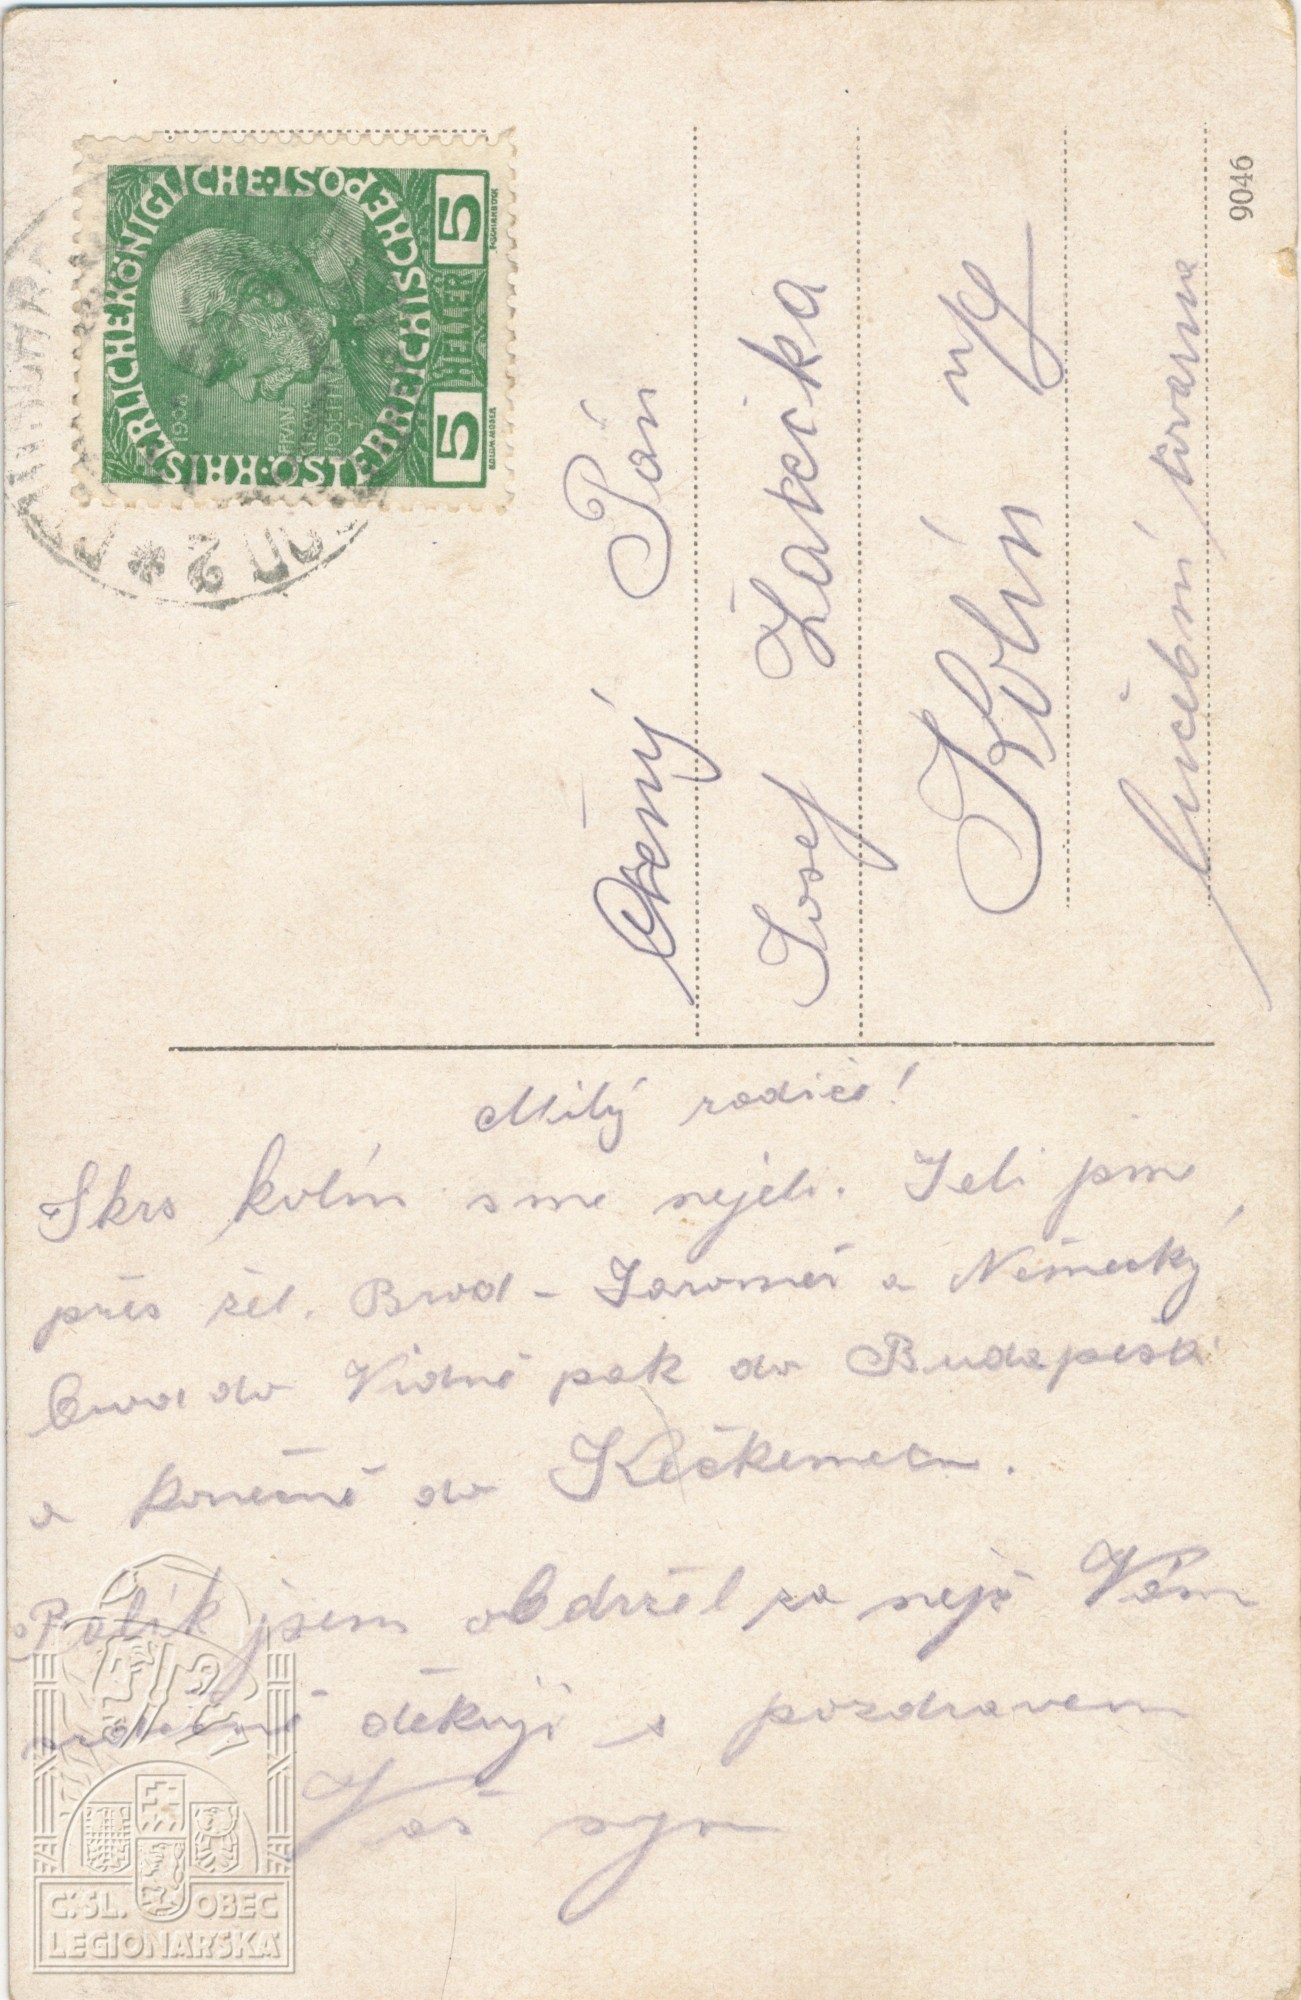 KAISERLICHE KÖNIGLICHE ÖSTERREICHISCHE POST
1908
FRANZ
JOSEF I
5 HELLER 5
PARDUBI
2
9046
Ctěný Pán
Josef Žatečka
Kolín n/L
lučební továrna
Milý rodiče!
Skrs kolín sme nejeli. Jeli jsme
přes žel. Brod - Jaroměř a Německý
brod do Vídně pak do Budapešti
a konečně do Kečkemetu.
Balík jsem obdržel za nejž Vám
srdečně děkuji s pozdravem
Váš syn
Č. SL. OBEC
LEGIONÁŘSKÁ